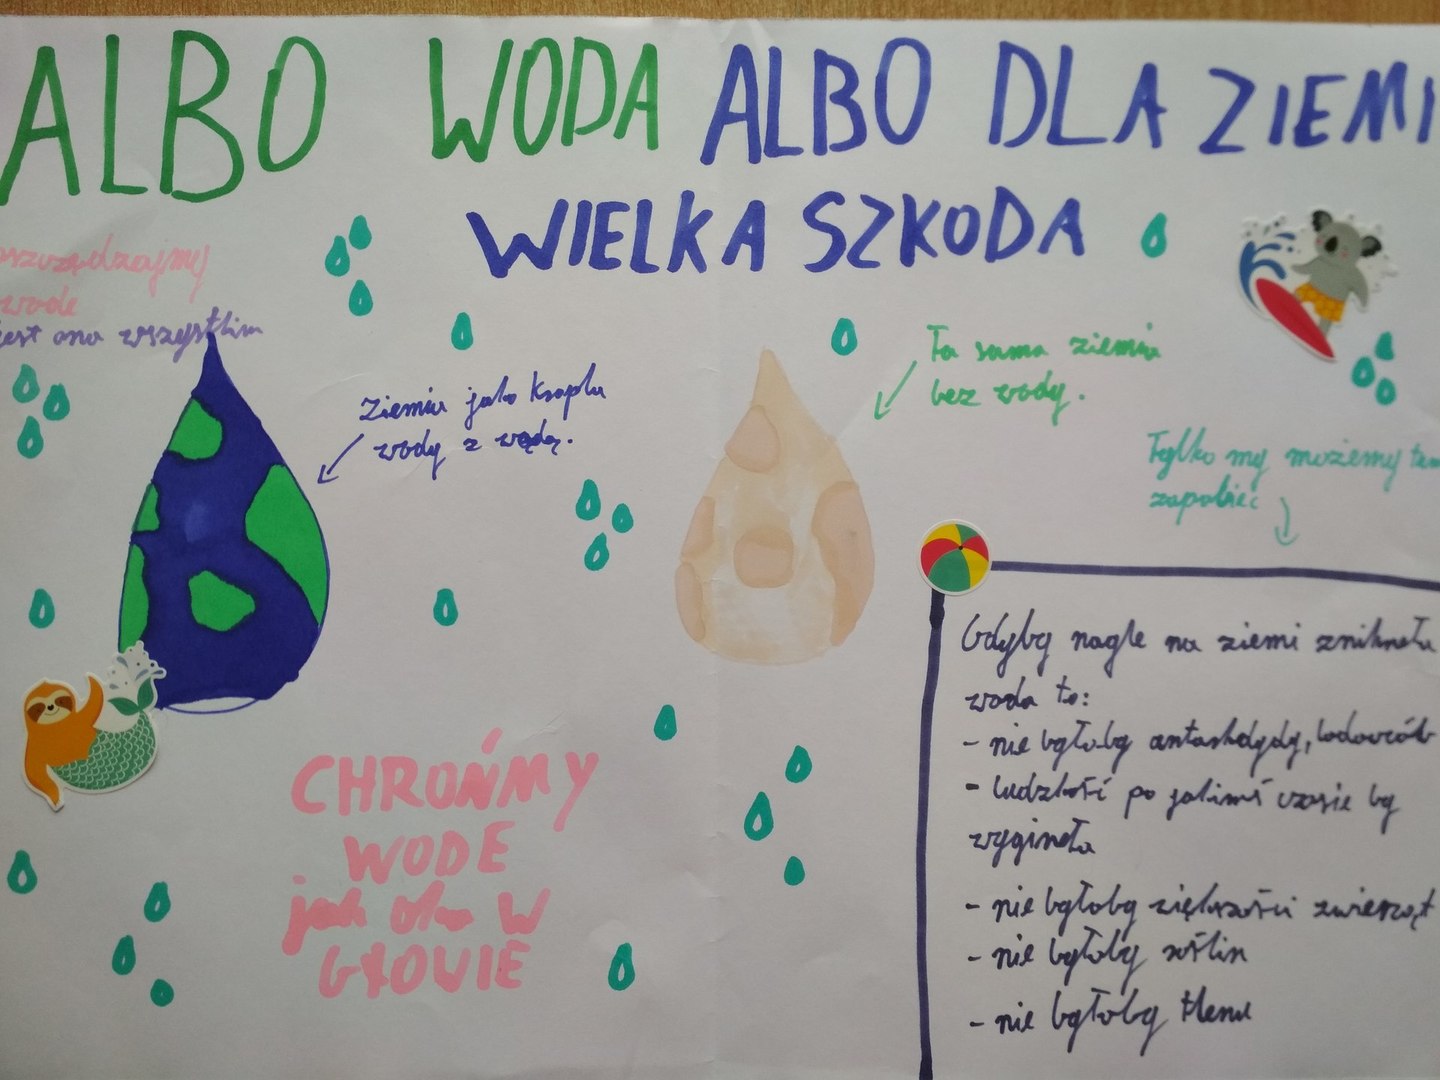 ALBO WODA ALBO DLA ZIEMI
WIELKA SZKODA
oszczędzajmy
wode
jest ona wszystkim
Ziemia jako kropla
wody z wodą.
Ta sama ziemia
bez wody.
Tylko my możemy temu
zapobiec
CHROŃMY
WODE
jak oko W
GŁOWIE
Gdyby nagle na ziemi zniknęła
woda to:
- nie byłoby antarktydy, lodowców
- ludzkość po jakimś czasie by
wyginęła
- nie byłoby większości zwierząt
- nie byłoby roślin
- nie byłoby tlenu